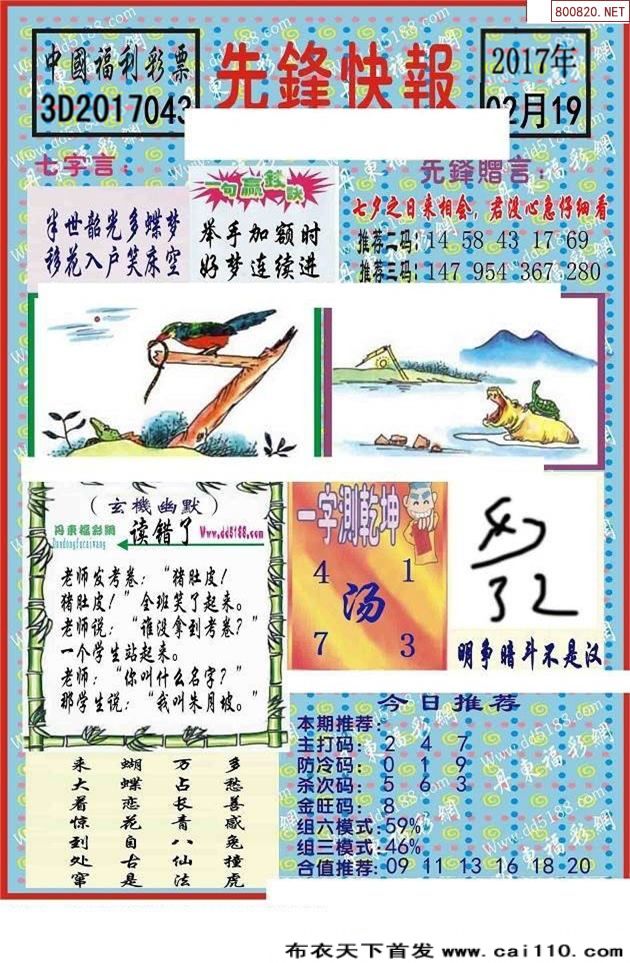 800820.NET
中國福利彩票
3D2017043
先鋒快報
2017年
02月19
七字言:
半世韶光多蝶梦
移花入户笑床空
一句赢钱诀
举手加额时
好梦连续进
先锋赠言:
七夕之日来相会，君没心急仔细看
推荐二码: 14 58 43 17 69
推荐三码: 147 954 367 280
(玄機幽默)
丹東福彩網
Dandongfucaiwang
读错了
Www.dd5188.com
老师发考卷：“猪肚皮！
猪肚皮！”全班笑了起来。
老师说：“谁没拿到考卷？”
一个学生站起来。
老师：“你叫什么名字？”
那学生说：“我叫朱月坡。”
一字測乾坤
4 1
汤
7 3
32
明争暗斗不是汉
多愁善感兔撞虎
万占长青八仙法
蝴蝶恋花自古是
来大看惊到处窜
今日推荐
本期推荐:
主打码: 2 4 7
防冷码: 0 1 9
杀次码: 5 6 3
金旺码: 8
组六模式:59%
组三模式:46%
合值推荐: 09 11 13 16 18 20
丹東福彩網
Www.dd5188.com
布衣天下首发 www.cai110.com